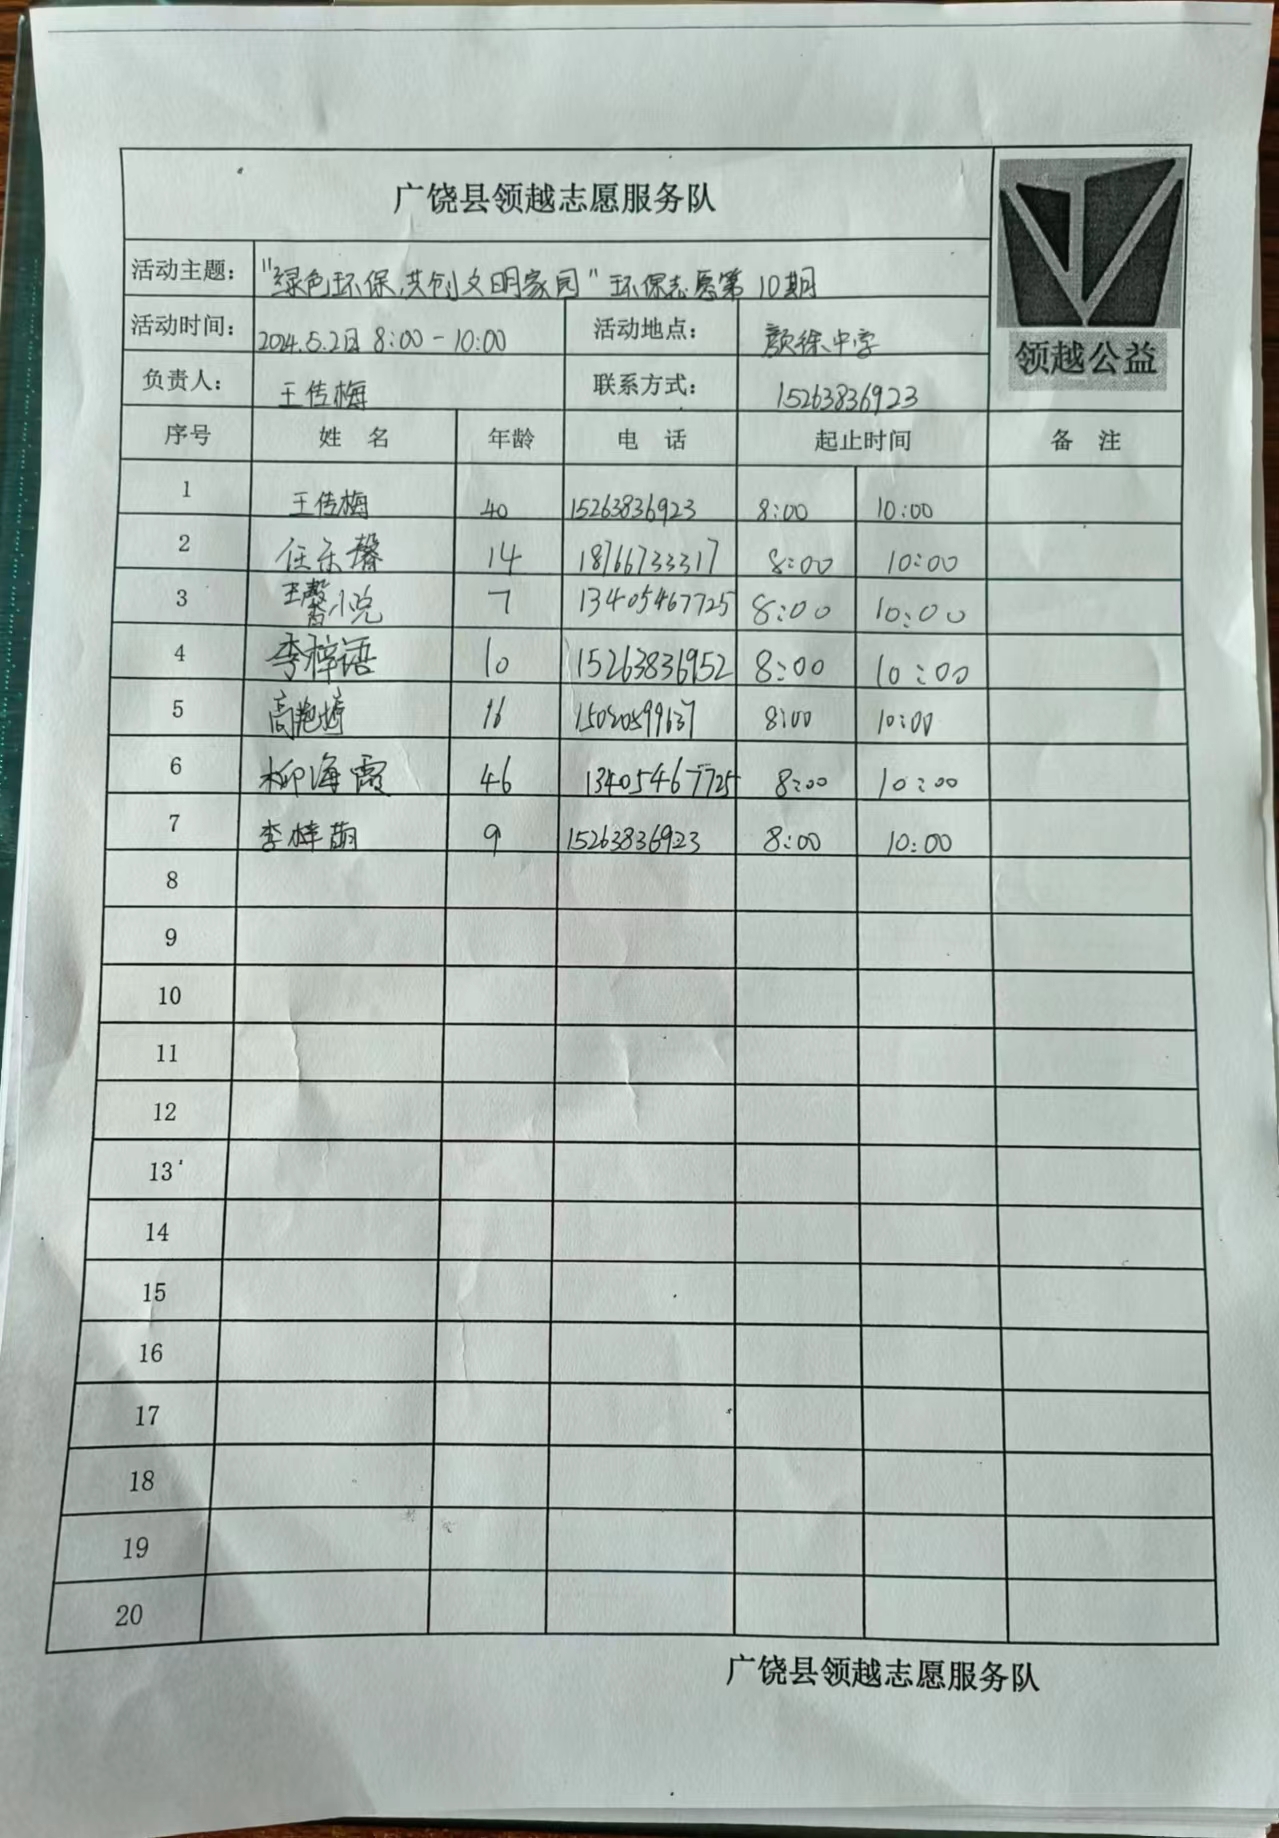 广饶县领越志愿服务队
领越公益
活动主题： "绿色环保,共创文明家园"环保志愿第10期
活动时间： 2024.5.2日 8:00-10:00 活动地点： 颜徐中学
负责人： 王传梅 联系方式： 15263836923
序号 姓 名 年龄 电 话 起止时间 备 注
1 王传梅 40 15263836923 8:00 10:00
2 任乐馨 14 18766733317 8:00 10:00
3 王馨悦 7 13405467725 8:00 10:00
4 李梓语 10 15263836952 8:00 10:00
5 高 16 15020599637 8:00 10:00
6 柳海霞 46 13405467725 8:00 10:00
7 李梓萌 9 15263836923 8:00 10:00
8
9
10
11
12
13
14
15
16
17
18
19
20
广饶县领越志愿服务队